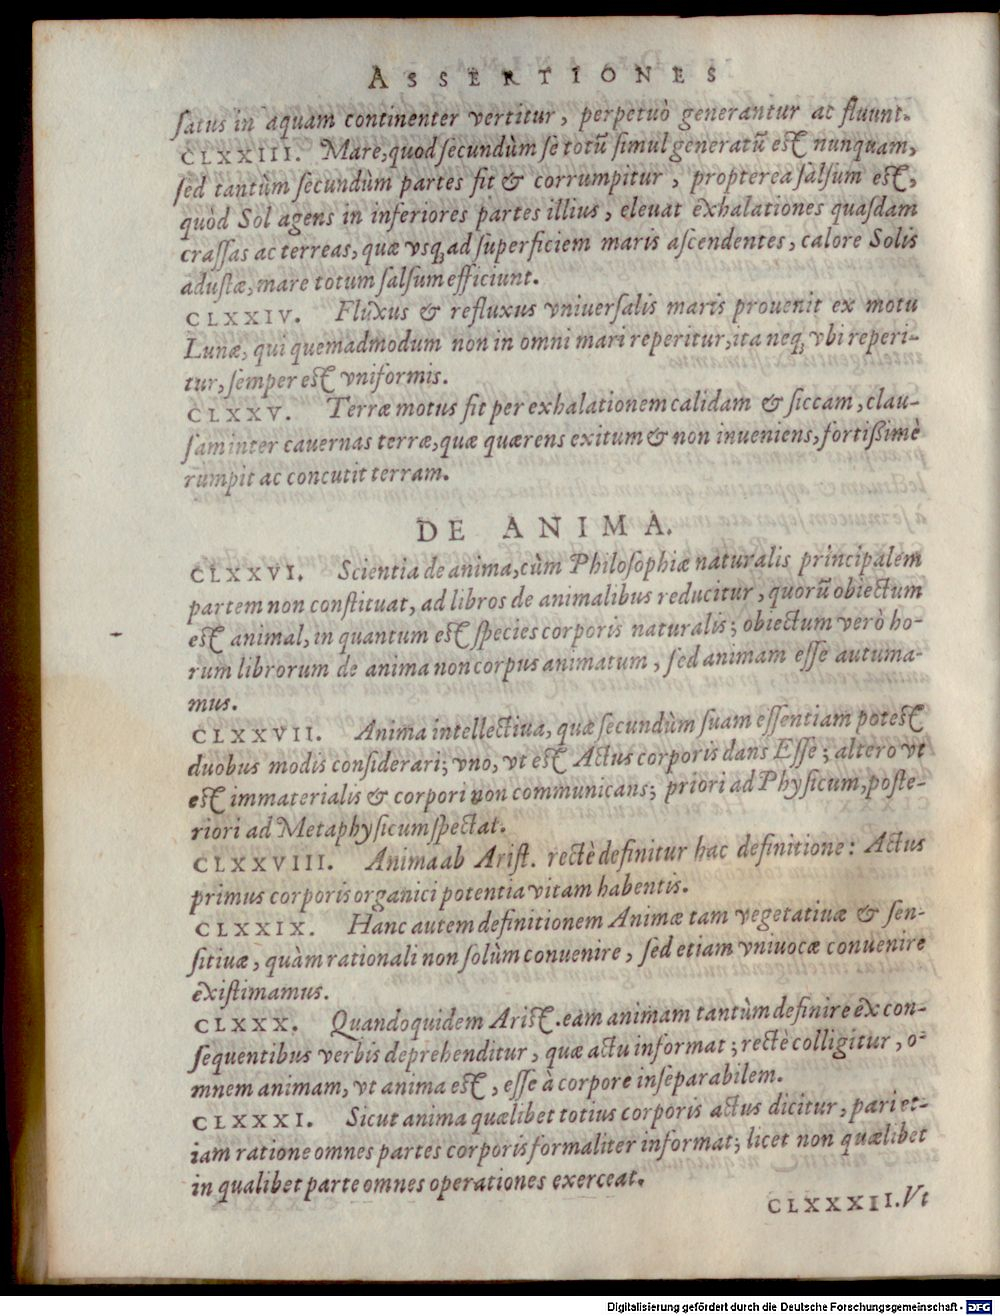 ASSERTIONES
ſatus in aquam continenter vertitur, perpetuò generantur ac fluunt.
CLXXIII. Mare, quod ſecundùm ſe totũ ſimul generatũ eſt nunquam,
ſed tantùm ſecundùm partes fit & corrumpitur, propterea ſalſum eſt,
quòd Sol agens in inferiores partes illius, eleuat exhalationes quaſdam
craſſas ac terreas, quæ vsq; ad ſuperficiem maris aſcendentes, calore Solis
aduſtæ, mare totum ſalſum efficiunt.
CLXXIV. Fluxus & refluxus vniuerſalis maris prouenit ex motu
Lunæ, qui quemadmodum non in omni mari reperitur, ita neq; vbi reperi-
tur, ſemper eſt vniformis.
CLXXV. Terræ motus fit per exhalationem calidam & ſiccam, clau-
ſam inter cauernas terræ, quæ quærens exitum & non inueniens, fortißimè
rumpit ac concutit terram.
DE ANIMA.
CLXXVI. Scientia de anima, cùm Philoſophiæ naturalis principalem
partem non conſtituat, ad libros de animalibus reducitur, quorũ obiectum
eſt animal, in quantum eſt ſpecies corporis naturalis; obiectum verò ho-
rum librorum de anima non corpus animatum, ſed animam eſſe autuma-
mus.
CLXXVII. Anima intellectiua, quæ ſecundùm ſuam eſſentiam poteſt
duobus modis conſiderari; vno, vt eſt Actus corporis dans Eſſe; altero vt
eſt immaterialis & corpori non communicans; priori ad Phyſicum, poſte-
riori ad Metaphyſicum ſpectat.
CLXXVIII. Anima ab Ariſt. rectè definitur hac definitione: Actus
primus corporis organici potentia vitam habentis.
CLXXIX. Hanc autem definitionem Animæ tam vegetatiuæ & ſen-
ſitiuæ, quàm rationali non ſolùm conuenire, ſed etiam vniuocæ conuenire
exiſtimamus.
CLXXX. Quandoquidem Ariſt. eam animam tantùm definire ex con-
ſequentibus verbis deprehenditur, quæ actu informat; rectè colligitur, o-
mnem animam, vt anima eſt, eſſe à corpore inſeparabilem.
CLXXXI. Sicut anima quælibet totius corporis actus dicitur, pari et-
iam ratione omnes partes corporis formaliter informat; licet non quælibet
in qualibet parte omnes operationes exerceat.
CLXXXII. Vt
Digitalisierung gefördert durch die Deutsche Forschungsgemeinschaft - DFG